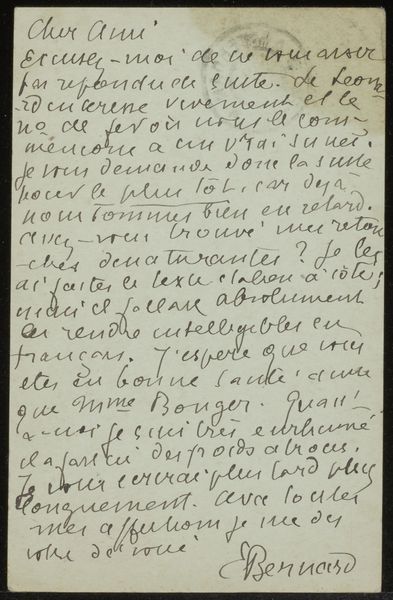 Cher Ami
Excusez-moi de ne vous avoir
pas répondu de suite. Le Leona-
rd intéresse vivement et le
no de fevrier nous le com-
mencons a un vrai succès.
Je vous demande donc la suite
pour le plus tôt, car déjà
nous sommes bien en retard.
avez-vous trouvé mes retou-
ches dénaturantes? Je les
ai faites le texte italien à côté;
mais il fallait absolument
les rendre intelligibles en
français. J'espère que vous
etes en bonne santé ainsi
que Mme Bonger. Quant
a-moi je suis très enrhumé
il a fait ici des froids atroces.
Je vous écrirai plus tard plus
longuement. Avec toutes
mes affections je me dis
votre dévoué
EBernard